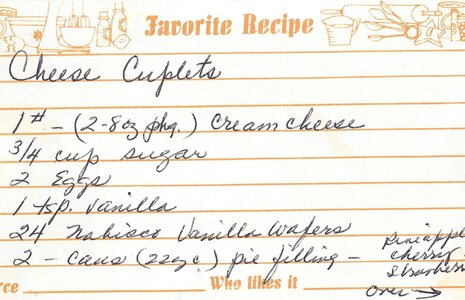 Favorite Recipe
Cheese Cuplets
1# - (2-8oz phg.) Cream cheese
3/4 cup sugar
2 Eggs
1 tsp. vanilla
24 Nabisco Vanilla Wafers
2 - cans (22oz) pie filling - pineapple
cherry
Strawberry
rce Who likes it over →